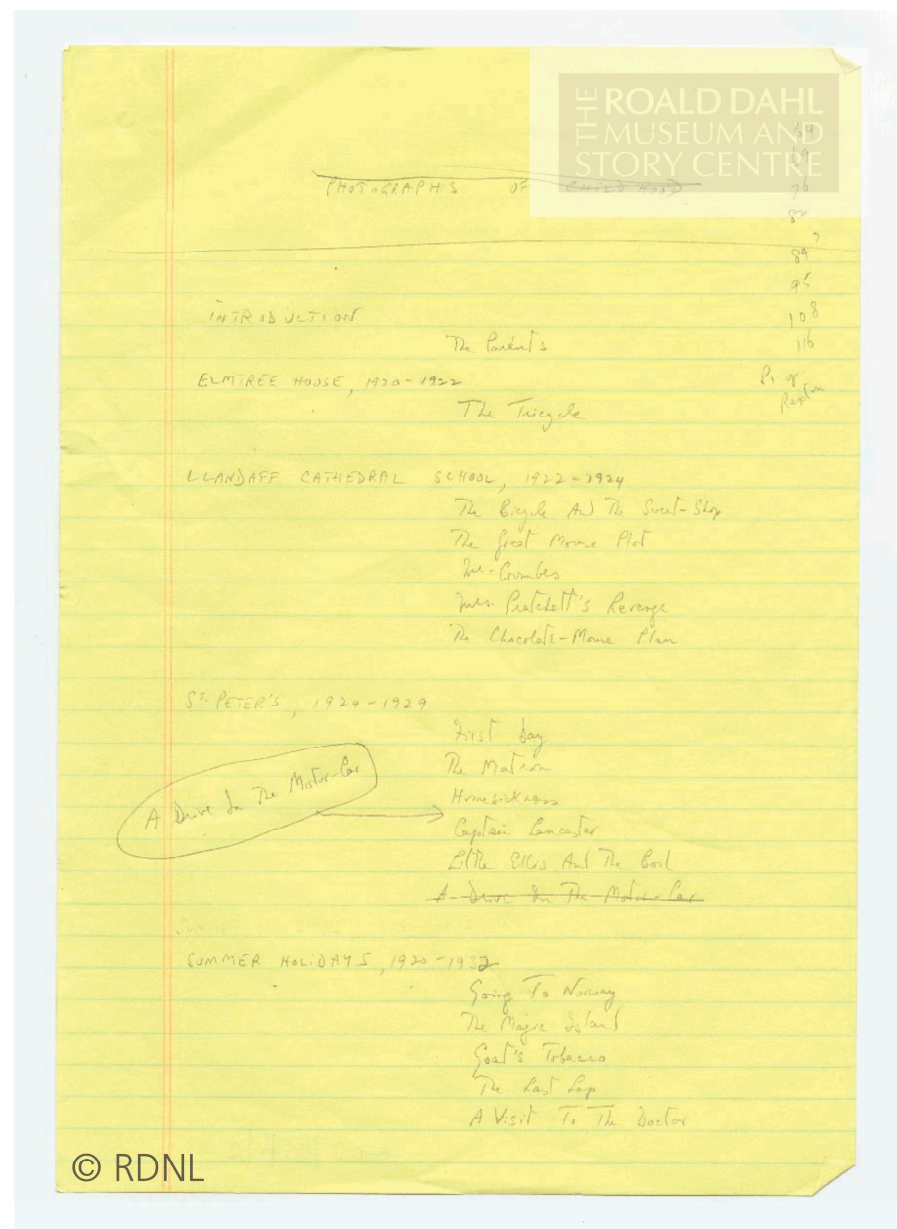 THE ROALD DAHL
MUSEUM AND
STORY CENTRE
PHOTOGRAPHS OF CHILDHOOD
69
76
82
89
95
108
116
INTRODUCTION
The Parents
ELMTREE HOUSE, 1920-1922
The Tricycle
LLANDAFF CATHEDRAL SCHOOL, 1922-1924
The Bicycle And The Sweet-Shop
The Great Mouse Plot
Mr. Coombes
Mrs. Pratchett's Revenge
The Chocolate-Mouse Plan
St. PETER'S, 1924-1929
First Day
The Matron
Homesickness
A Drive In The Motor-Car
Captain Lancaster
Little Ellis And The Boil
A Drive In The Motor-Car
SUMMER HOLIDAYS, 1920-1932
Going To Norway
The Magic Island
Goat's Tobacco
The Last Lap
A Visit To The Doctor
© RDNL